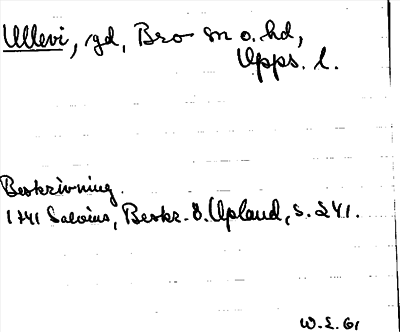 Ullevi, gd, Bro sn o. hd,
Upps. l.
Beskrivning.
1741 Salvius, Beskr. ö. Upland, s. 241.
W.E. 61